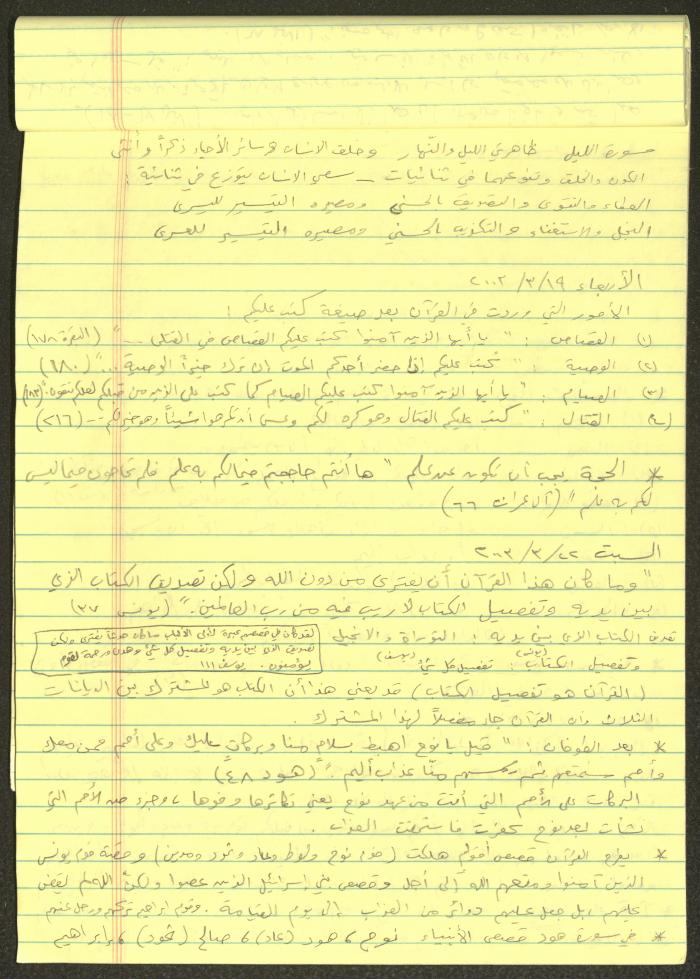 سورة الليل ظاهرتي الليل والنهار وخلق الانسان وسائر الأحياء ذكراً وأنثى
الكون والخلق وتنوعهما في ثنائيات – سعي الانسان يتوزع في ثنائية :
العطاء والتقوى والتصديق بالحسنى ومصيره التيسير لليسرى
البخل والاستغناء والتكذيب بالحسنى ومصيره التيسير للعسرى
الأربعاء ١٩/٣/٢٠٠٣
الأمور التي وردت في القرآن بعد صيغة كتب عليكم :
(١) القصاص : " يا أيها الذين آمنوا كتب عليكم القصاص في القتلى ... " (البقرة ١٧٨)
(٢) الوصية : " كتب عليكم إذا حضر أحدكم الموت ان ترك خيراً الوصية ... " (١٨٠)
(٣) الصيام : " يا أيها الذين آمنوا كتب عليكم الصيام كما كتب على الذين من قبلكم لعلكم تتقون . " (١٨٣)
(٤) القتال : " كتب عليكم القتال وهو كره لكم وعسى أن تكرهوا شيئاً وهو خير لكم ... (٢١٦)
* الحجة يجب أن تكون عن علم " ها أنتم حاججتم فيما لكم به علم فلم تحاجون فيما ليس
لكم به علم " (آل عمران ٦٦)
السبت ٢٢/٣/٢٠٠٣
" وما كان هذا القرآن أن يفترى من دون الله ولكن تصديق الكتاب الذي
بين يديه وتفصيل الكتاب لا ريب فيه من رب العالمين . " (يونس ٣٧)
الكتاب الذي بين يديه : التوراة والانجيل
لقد كان في قصصهم عبرة لأولي الألباب ما كان حديثاً يفترى ولكن
تصديق الذي بين يديه وتفصيل كل شيء وهدى ورحمة لقوم
يؤمنون . يوسف ١١١
وتفصيل الكتاب (يونس) : تفصيل كل شيء (يوسف)
(القرآن هو تفصيل الكتاب) قد يعني هذا أن الكتاب هو المشترك بين الديانات
الثلاث وأن القرآن جاء مفصلاً لهذا المشترك .
* بعد الطوفان : " قيل يا نوح اهبط بسلام منا وبركات عليك وعلى أمم ممن معك
وأمم سنمتعهم ثم يمسهم منا عذاب أليم . " (هود ٤٨)
البركات على الأمم التي أتت من عهد نوح يعني تكاثرها ونموها ، وجزء من الأمم التي
نشأت بعد نوح كفرت فاستحقت العذاب .
* يفرق القرآن قصص أقوام هلكت (قوم نوح ولوط وعاد وثمود ومدين) وقصة قوم يونس
الذين آمنوا ومتعهم الله إلى أجل وقصص بني إسرائيل الذين عصوا ولكن الله لم يقض
عليهم ، بل جعل عليهم دوائر من العذاب إلى يوم القيامة . وقوم إبراهيم تركهم ورحل عنهم
* في سورة هود قصص الأنبياء نوح ، هود (عاد) ، صالح (ثمود) ، إبراهيم